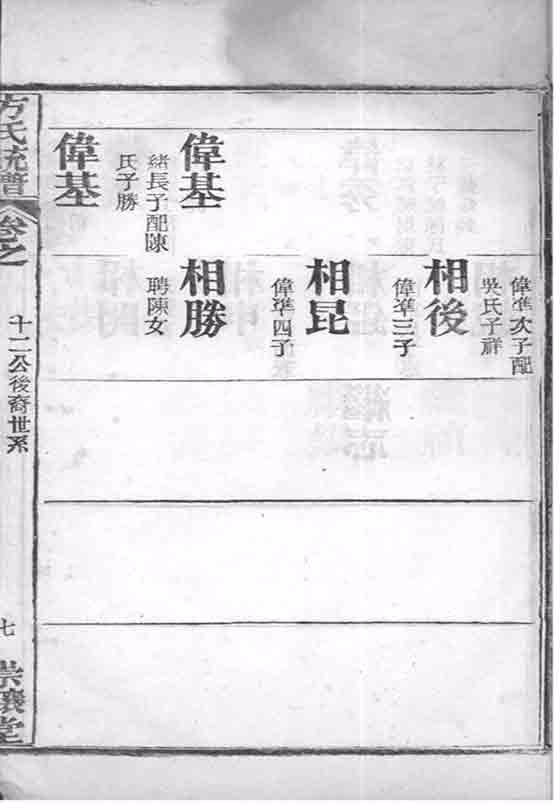 偉準次子配
吳氏子祥
相後
偉準三子
相昆
偉準四子
偉基
緒長子配陳
氏子勝
相勝
聘陳女
偉基
方氏統譜
卷之
十二公後裔世系
七